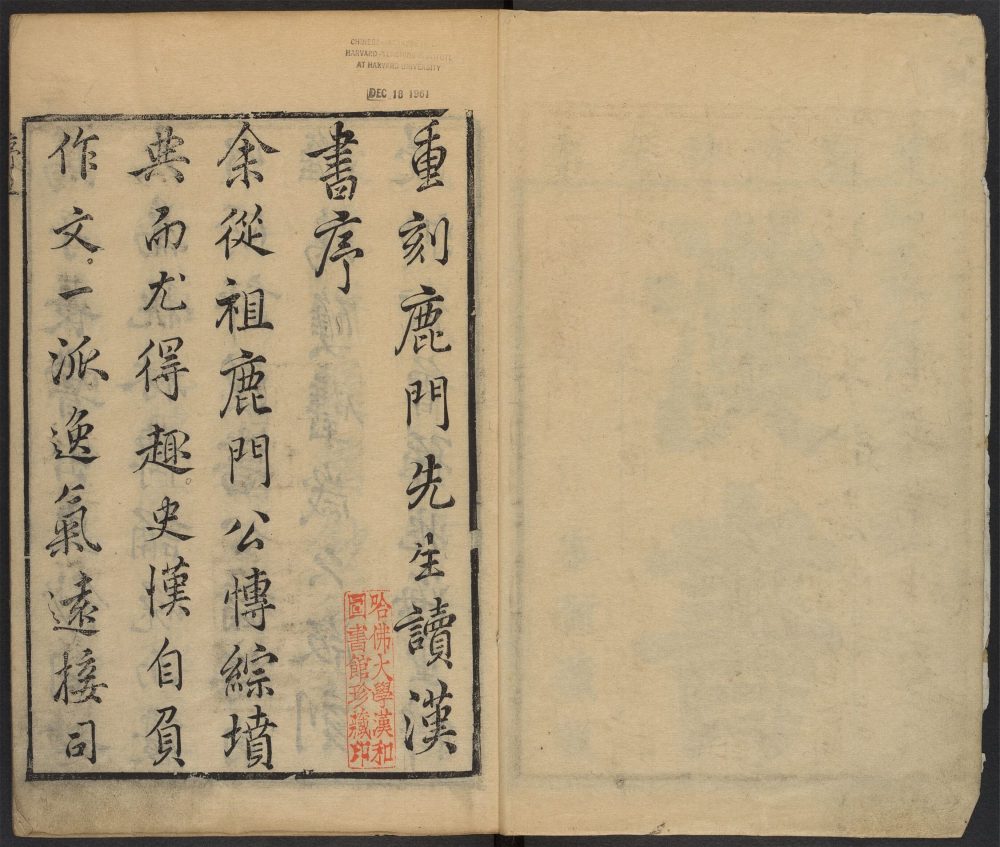 CHINESE-JAPANESE
HARVARD-YENCHING INSTITUTE
AT HARVARD UNIVERSITY
DEC 18 1961
重刻鹿門先生讀漢
書序
余從祖鹿門公博綜墳
典而尤得趣。史漢自負
作文。一派逸氣遠接司
哈佛大學漢和
圖書館珍藏印